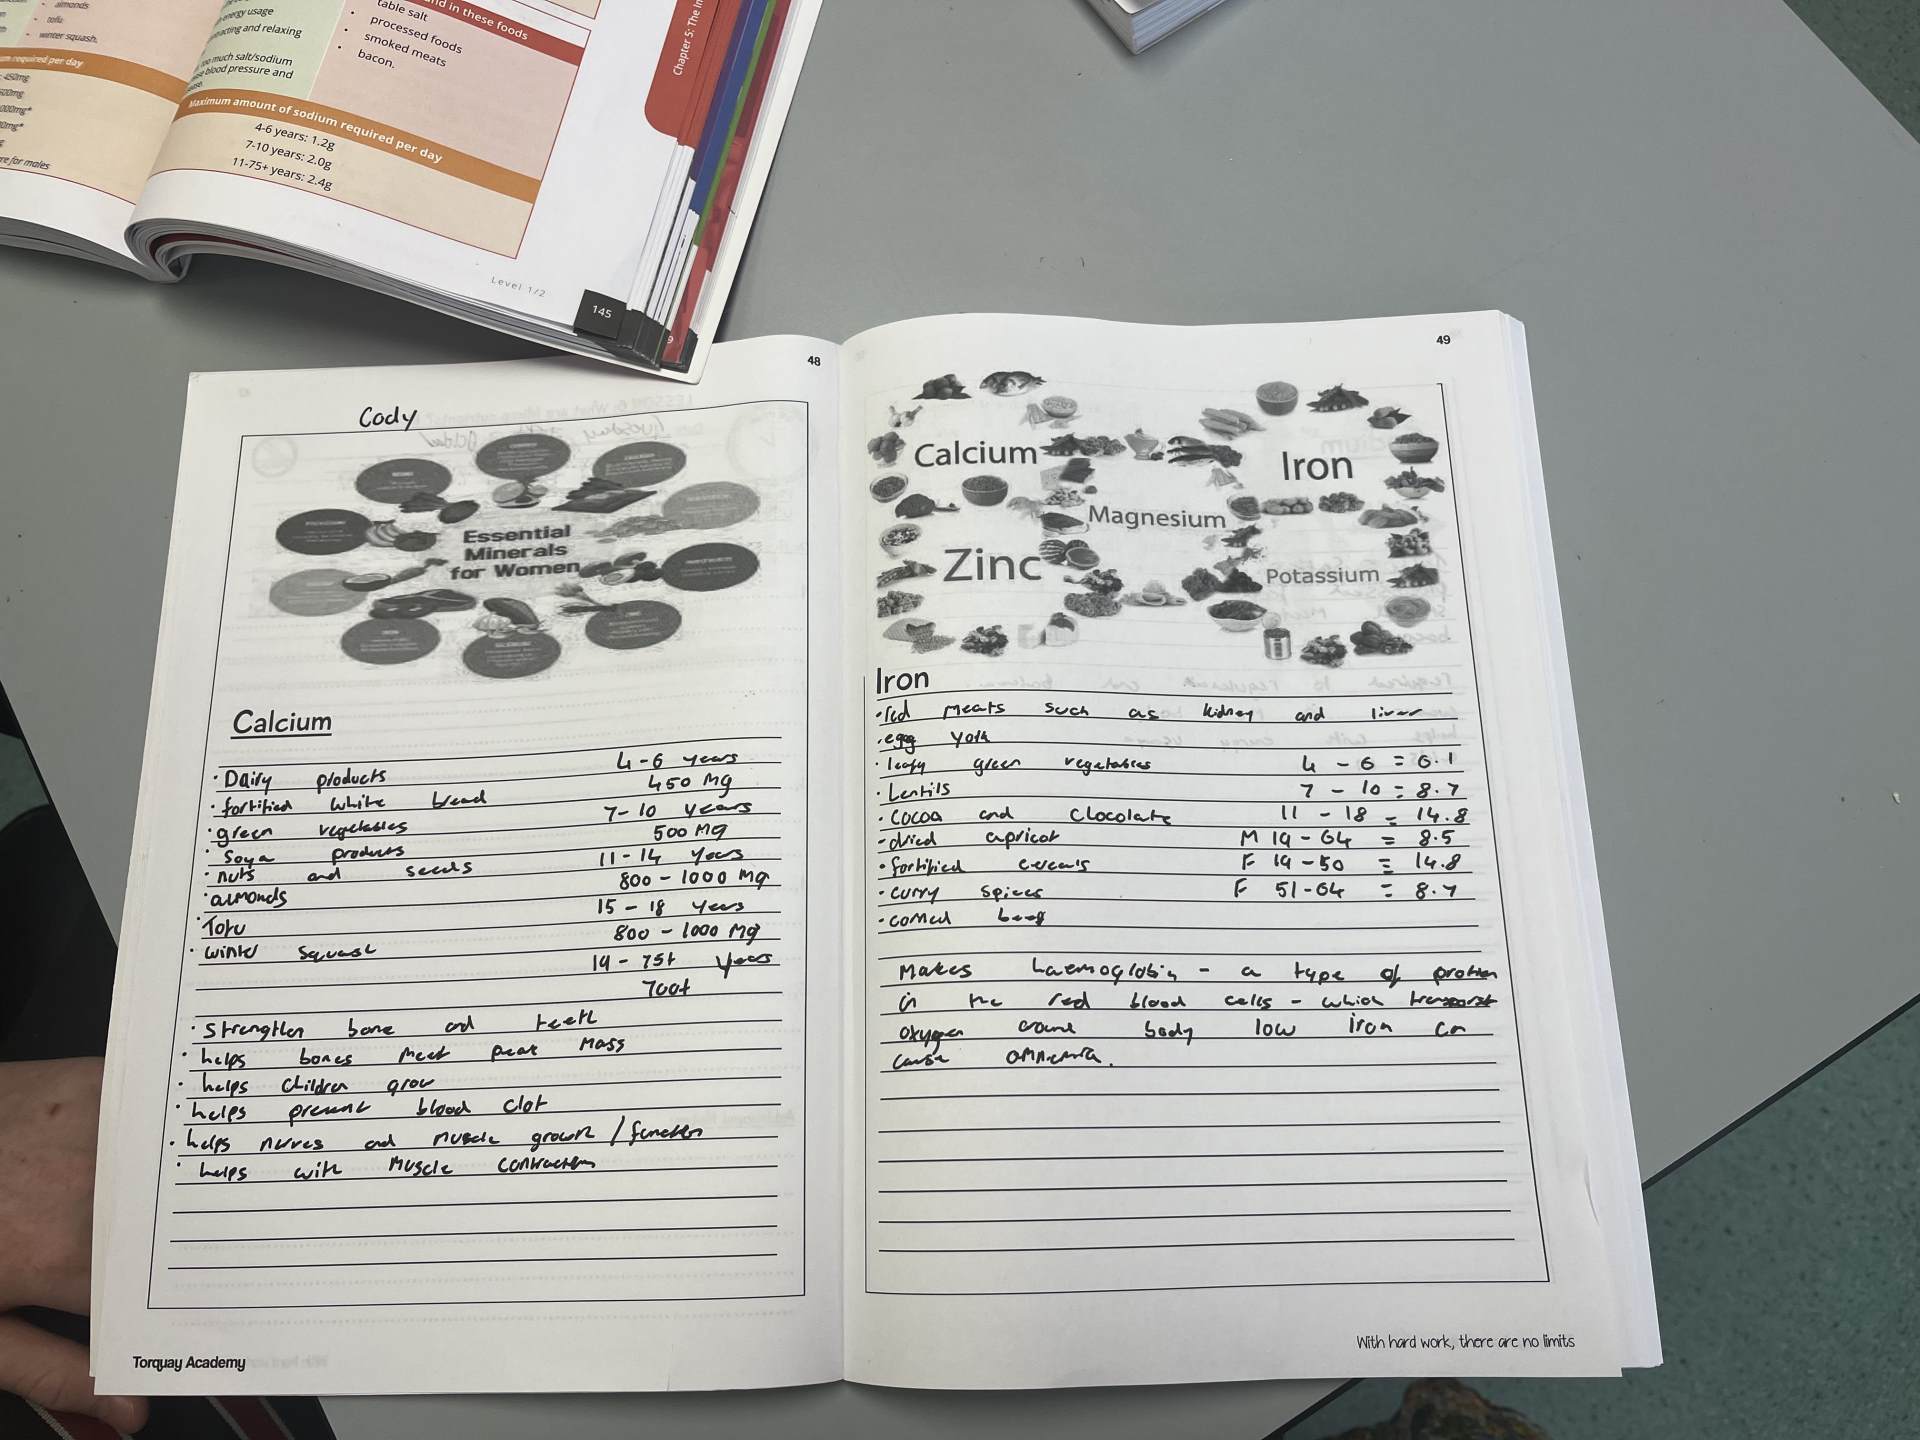 almonds
tofu
winter squash.
required per day
450mg
energy usage
contracting and relaxing
too much salt/sodium
blood pressure and
Maximum amount of sodium required per day
4-6 years: 1.2g
7-10 years: 2.0g
11-75+ years: 2.4g
in these foods
table salt
processed foods
smoked meats
bacon.
Chapter 5: The In
Level 1/2
145
48
Cody
Essential
Minerals
for Women
Calcium
• Dairy products
• fortified white bread
• green vegetables
• Soya products
• nuts and seeds
• almonds
• Tofu
• winter squash
4-6 years
450 Mg
7-10 years
500 Mg
11-14 years
800-1000 Mg
15-18 years
800-1000 Mg
19-75+ years
700+
• Strengthen bone and teeth
• helps bones meet peak Mass
• helps children grow
• helps prevent blood clot
• helps nerves and muscle growth / function
• helps with Muscle contraction
Torquay Academy
49
Calcium
Iron
Magnesium
Zinc
Potassium
Iron
• red meats such as kidney and liver
• egg yolk
• leafy green vegetables 4 - 6 = 6.1
• Lentils 7 - 10 = 8.7
• Cocoa and Clocolate 11 - 18 = 14.8
• dried apricot M 19 - 64 = 8.5
• fortified cereals F 19 - 50 = 14.8
• curry spices F 51-64 = 8.7
• corned beef
Makes haemoglobin - a type of protien
in the red blood cells - which transport
oxygen around body low iron can
cause
With hard work, there are no limits